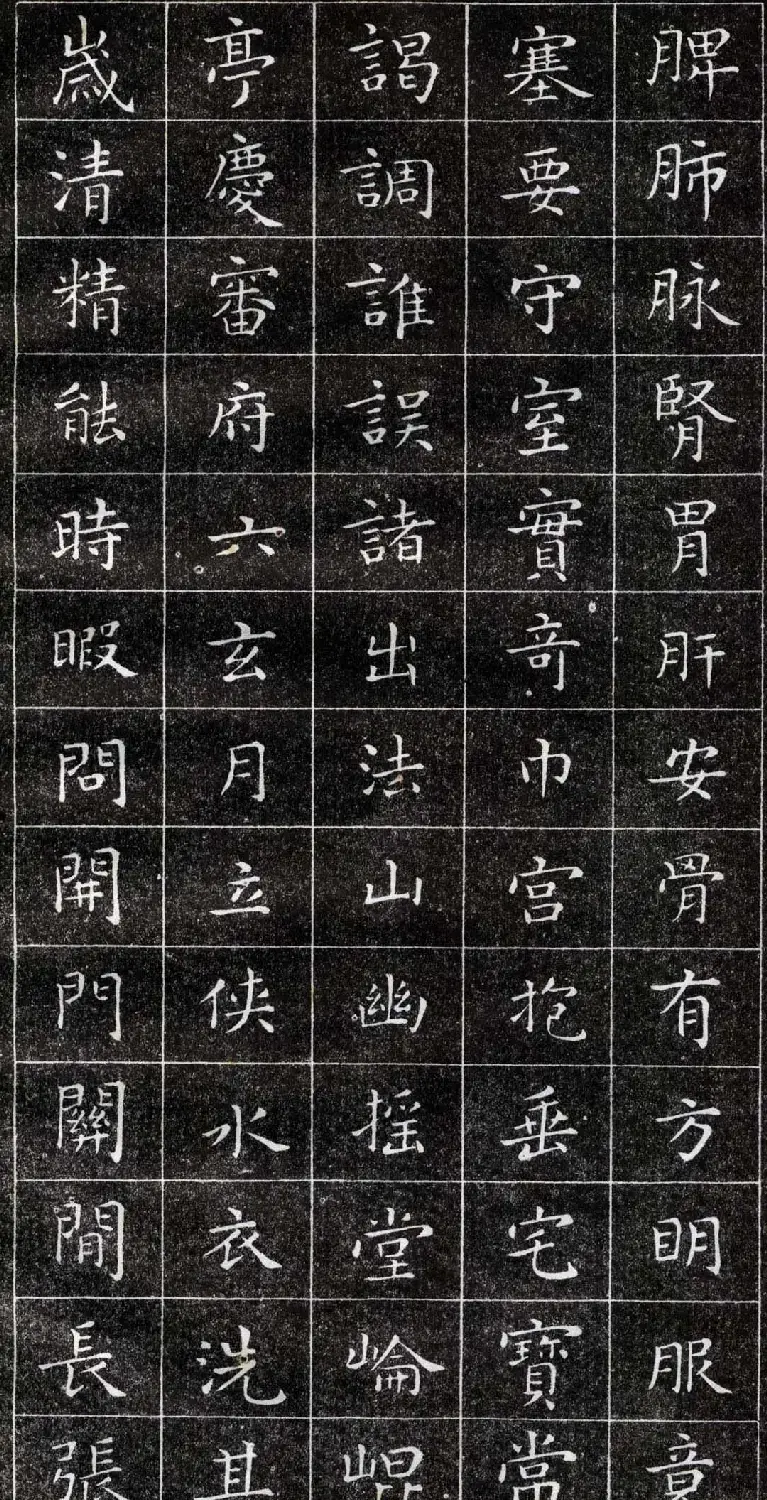 脾肺脉腎胃肝安骨有方明服章
塞要守室實奇巾宫抱垂宅寶常
謁調誰誤諸出法山幽摇堂崘崐
亭慶審府六玄月立俠水衣洗其
歲清精能時暇問開門關閒長張